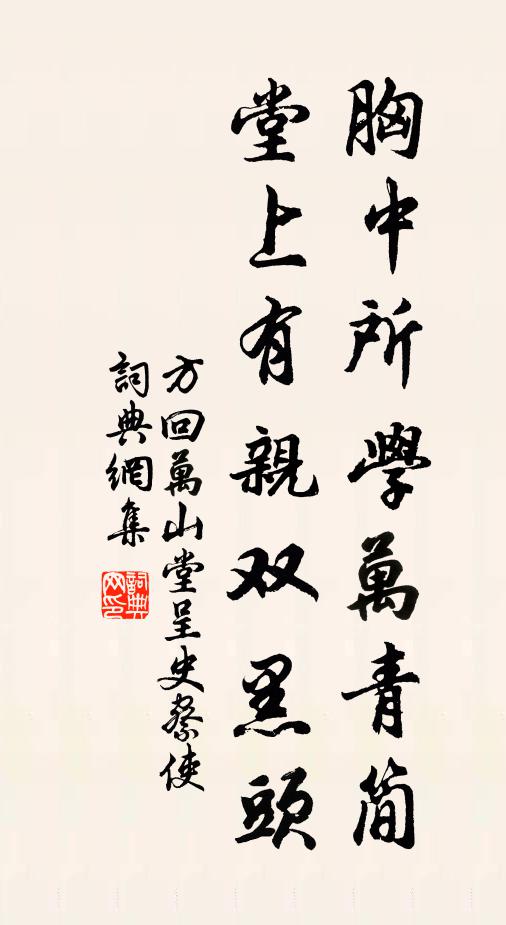 胸中所學萬青简
堂上有親双黑頭
方回萬山堂呈史察使
詞典網集
詞典网印